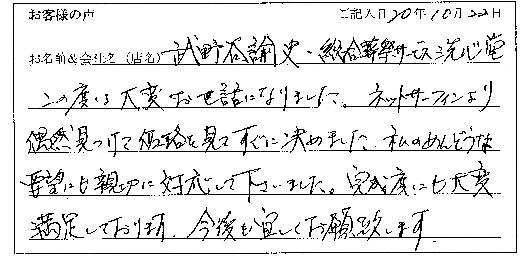 お客様の声 ご記入日20年10月22日
お名前&会社名(店名) 武野谷諭史・総合葬祭サービス洗心堂
この度は大変お世話になりました。ネットサーフィンより
偶然見つけて価格を見てすぐに決めました。私のめんどうな
要望にも親切に対応して下さいました。完成度にも大変
満足しております。今後も宜しくお願い致します。